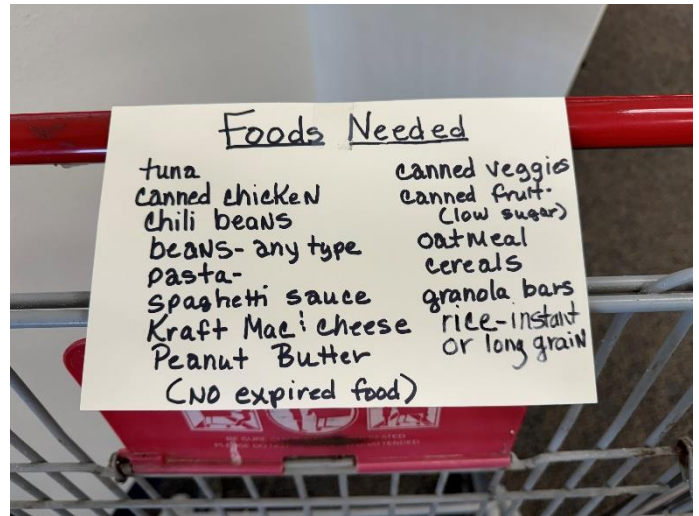 Foods Needed
tuna
canned chicken
chili beans
beans- any type
pasta-
spaghetti sauce
Kraft Mac & cheese
Peanut Butter
(NO expired food)
canned veggies
canned fruit-
(low sugar)
oatmeal
cereals
granola bars
rice-instant
or long grain